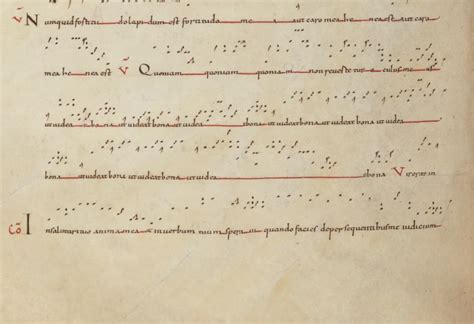 V Numquid fortitudo lapidum est fortitudo me a aut caro mea henea est aut caro
mea henea est V Quoniam quoniam quoniam non revertetur oculus meus
ut videat bona ut videat bona ut videa bona ut videat bona ut videa
bona ut videat bona ut videat bona ut videa t bona Vir erat in
Co In salutari tuo anima mea et in verbum tuum speravi quando facies de persequentibus me iudicium